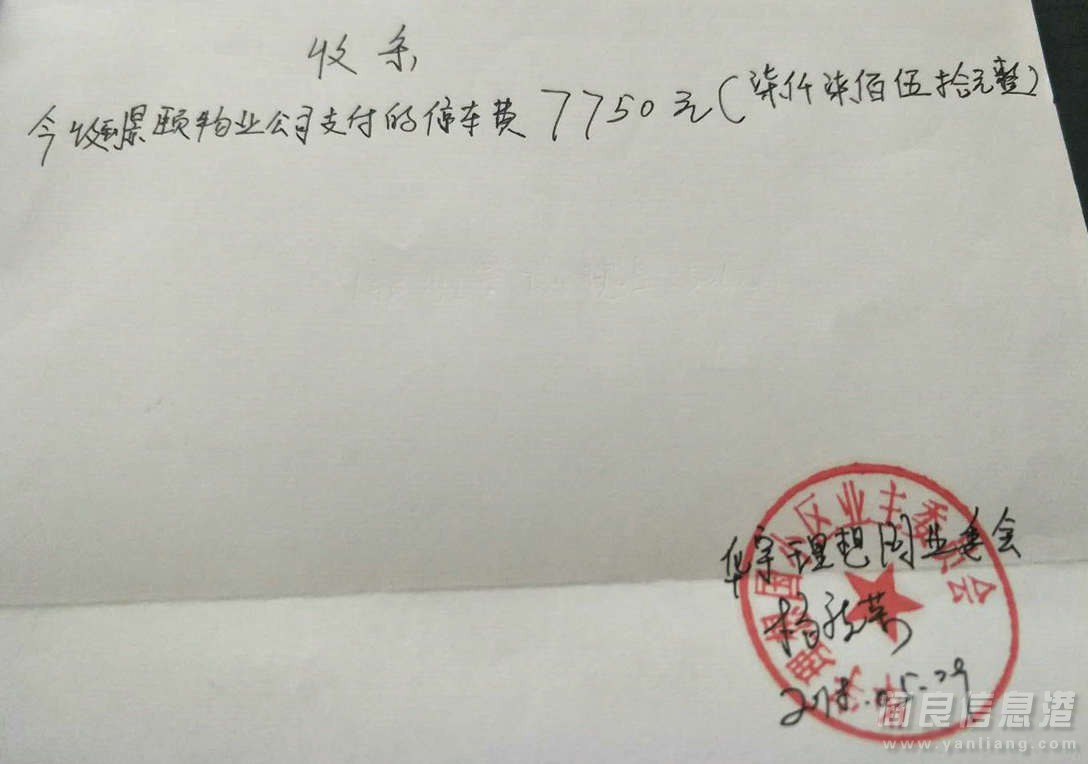 收条
今收到景颐物业公司支付的停车费7750元(柒仟柒佰伍拾元整)
华宇理想国小区业主委员会
华宇理想国业委会
2018.05.29
阎良信息港
www.yanliang.com